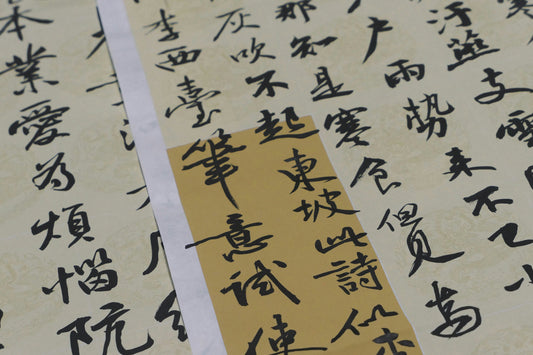 汙燕支雪
戶雨勢來不已小
那知是寒食但見烏
灰吹不起東坡此詩似
李西臺筆意試使
本業愛為煩惱院